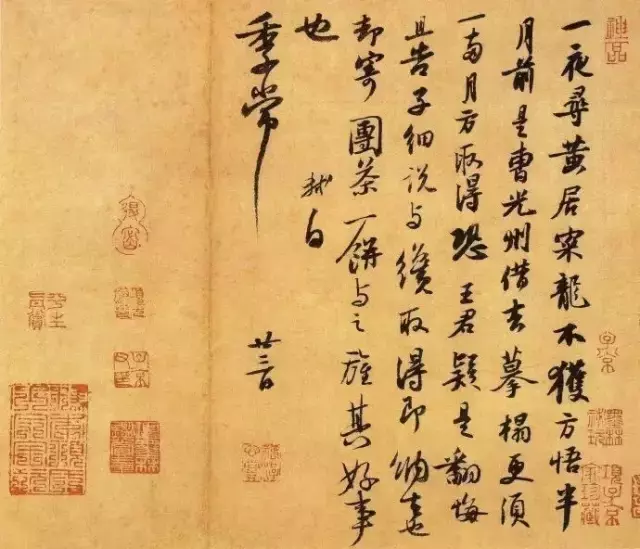 一夜尋黄居寀龍不獲方悟半
月前是曹光州借去摹搨更須
一兩月方取得恐王君疑是翻悔
且告子細說与纔取得即納去也
却寄團茶一餅与之旌其好事
也
軾白
季常
廿三日
神品